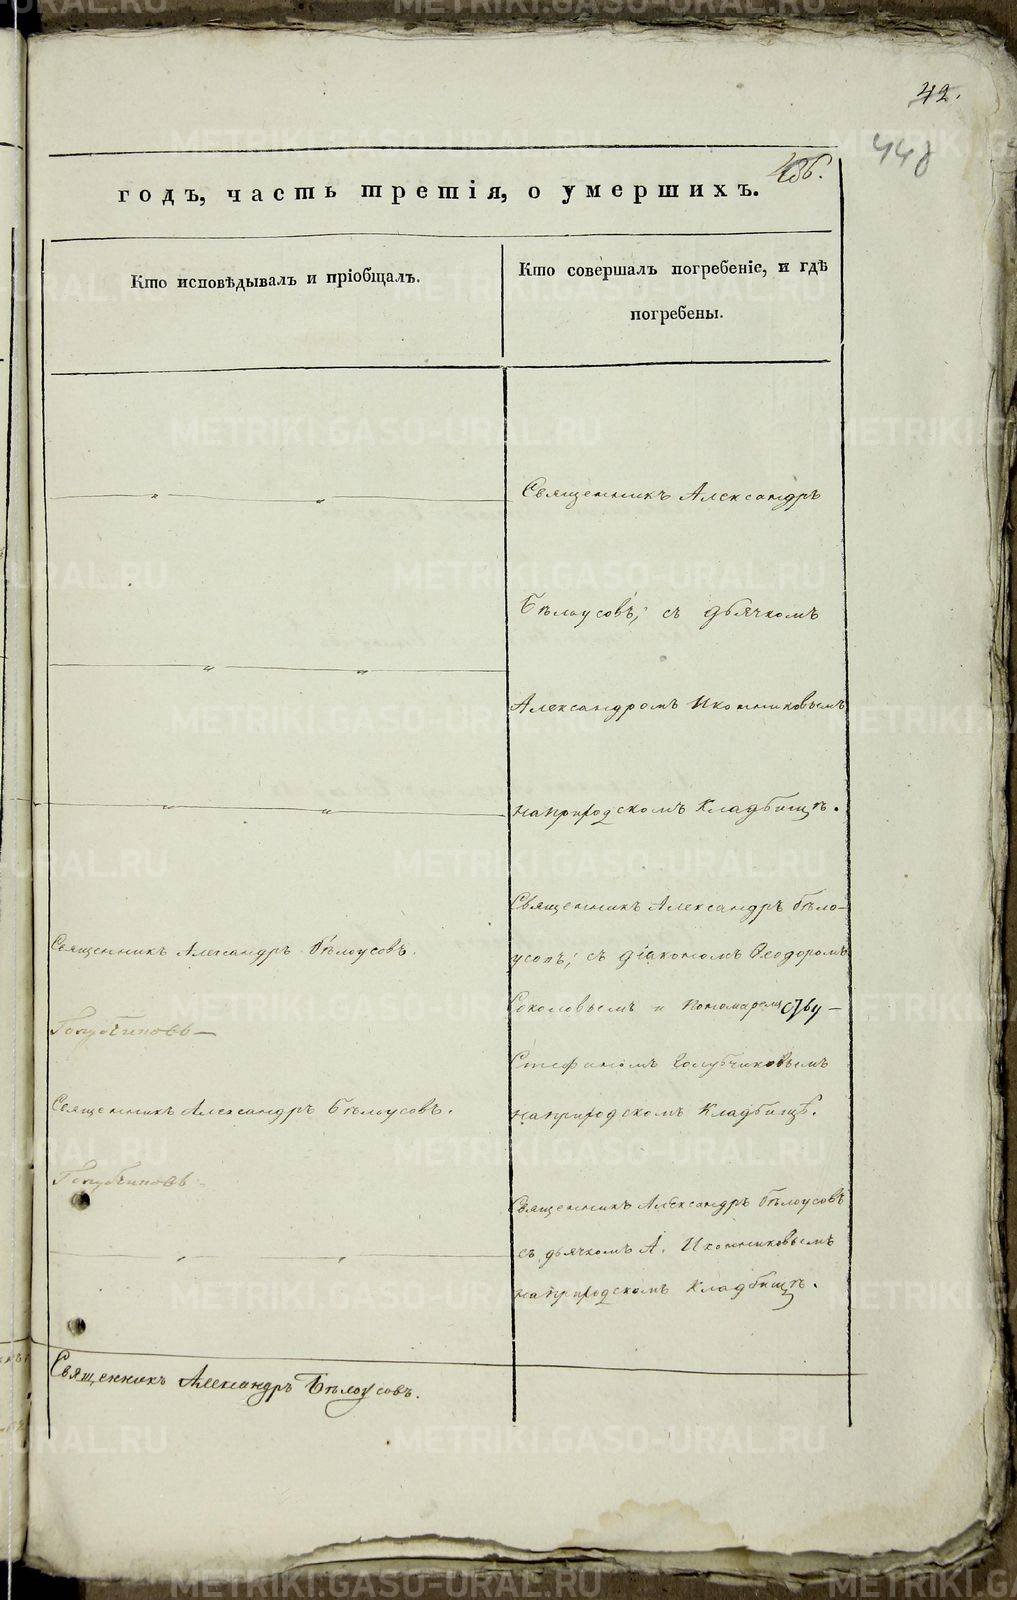 42.
448
436.
годъ, часть третія, о умершихъ.
Кто исповѣдывалъ и пріобщалъ.
Кто совершалъ погребеніе, и гдѣ
погребены.
Священникъ Александръ
Бѣлоусовъ, съ дьячкомъ
Александромъ Иконниковымъ
на природскомъ Кладбищѣ.
Священникъ Александръ Бѣло-
усовъ, съ діакономъ Ѳеодоромъ
Соколовымъ и Пономаремъ
Стефаномъ Голубчиковымъ
на природскомъ Кладбищѣ.
Священникъ Александръ Бѣлоусовъ
съ дьячкомъ А. Иконниковымъ
на природскомъ Кладбищѣ.
Священникъ Александръ Бѣлоусовъ.
Голубчиковъ
Священникъ Александръ Бѣлоусовъ.
Голубчиковъ
Священникъ Александръ Бѣлоусовъ.
METRIKI.GASO-URAL.RU